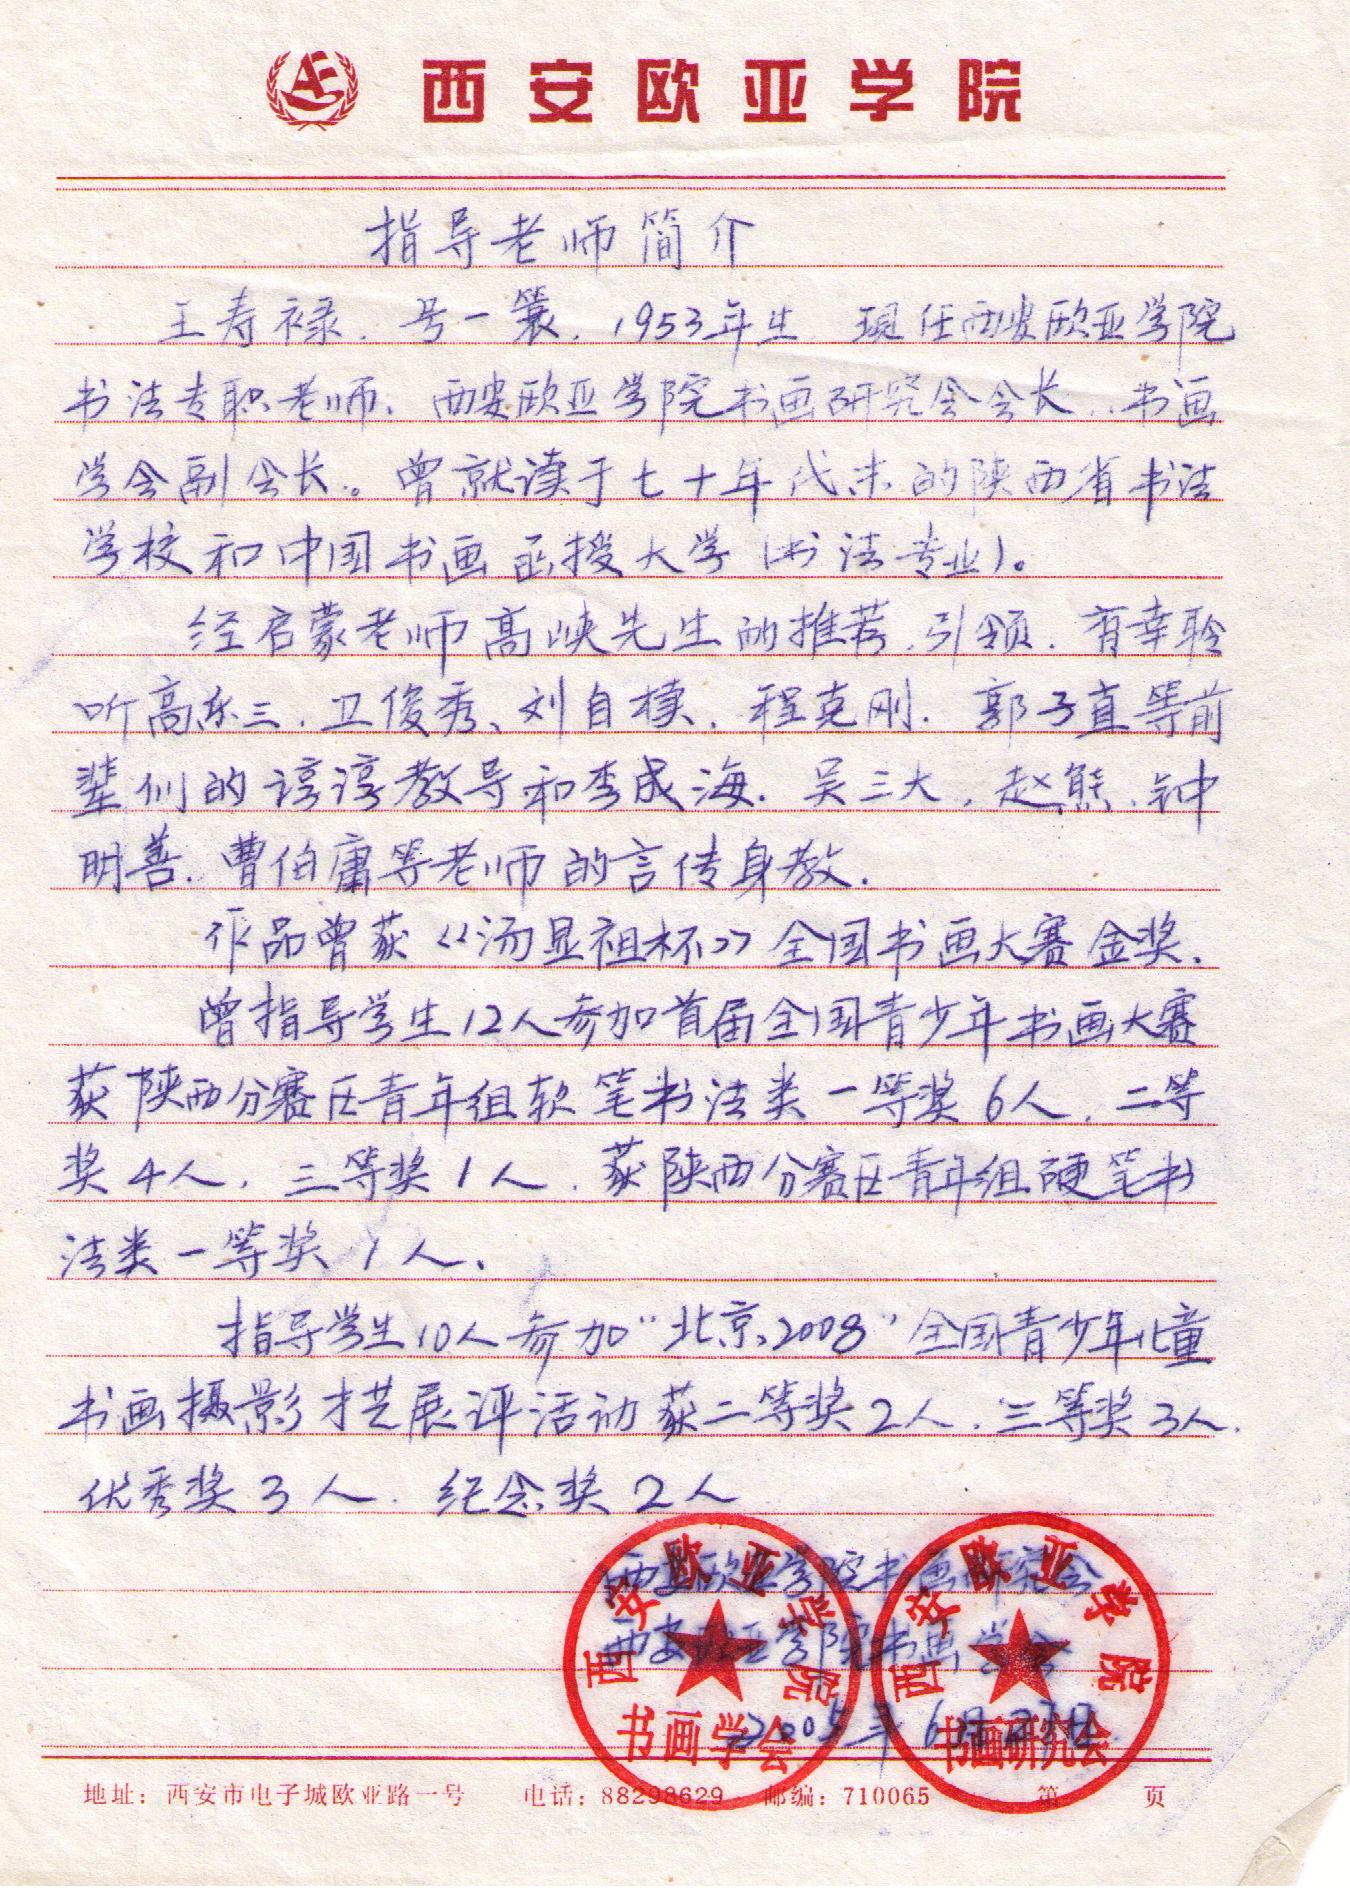 西安欧亚学院
指导老师简介
王寿禄.号一簑.1953年生 现任西安欧亚学院
书法专职老师.西安欧亚学院书画研究会会长..书画
学会副会长。曾就读于七十年代末的陕西省书法
学校和中国书画函授大学(书法专业)。
经启蒙老师高峡先生的推荐.引领.有幸聆
听高乐三.卫俊秀、刘自椟.程克刚.郭子直等前
辈们的谆谆教导和李成海.吴三大.赵熊.钟
明善.曹伯庸等老师的言传身教.
作品曾获《汤显祖杯》全国书画大赛金奖.
曾指导学生12人参加首届全国青少年书画大赛
获陕西分赛区青年组软笔书法类一等奖6人.二等
奖4人.三等奖1人.获陕西分赛区青年组硬笔书
法类一等奖1人.
指导学生10人参加“北京、2008”全国青少年儿童
书画摄影才艺展评活动获二等奖2人.三等奖3人.
优秀奖3人.纪念奖2人
西安欧亚学院书画研究会
西安欧亚学院书画学会
2005年6月日
西安欧亚学院
书画学会
西安欧亚学院
书画研究会
地址：西安市电子城欧亚路一号 电话：88298629 邮编：710065 第 页